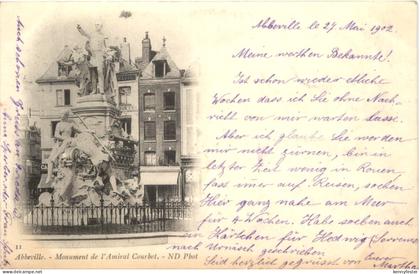 Abbeville le 27 Mai 1902.
Meine werthen Bekannte!
Ist schon wieder etliche
Wochen dass ich Sie ohne Nach-
richt von mir warten lasse.
Aber ich glaube Sie werden
mir nicht zürnen, bin in
letzter Zeit wenig in Rouen
fast immer auf Reisen, sochen
Hier ganz nahe am Meer
für 4 Wochen. Habe sochen auch
in Geschriechen für Hedwig
nach geschrieht.
Seid herzlich gegrüsst von
Martha
Auch schönen Gruss an
11
Abbeville. - Monument de l'Amiral Courbet. - ND Phot